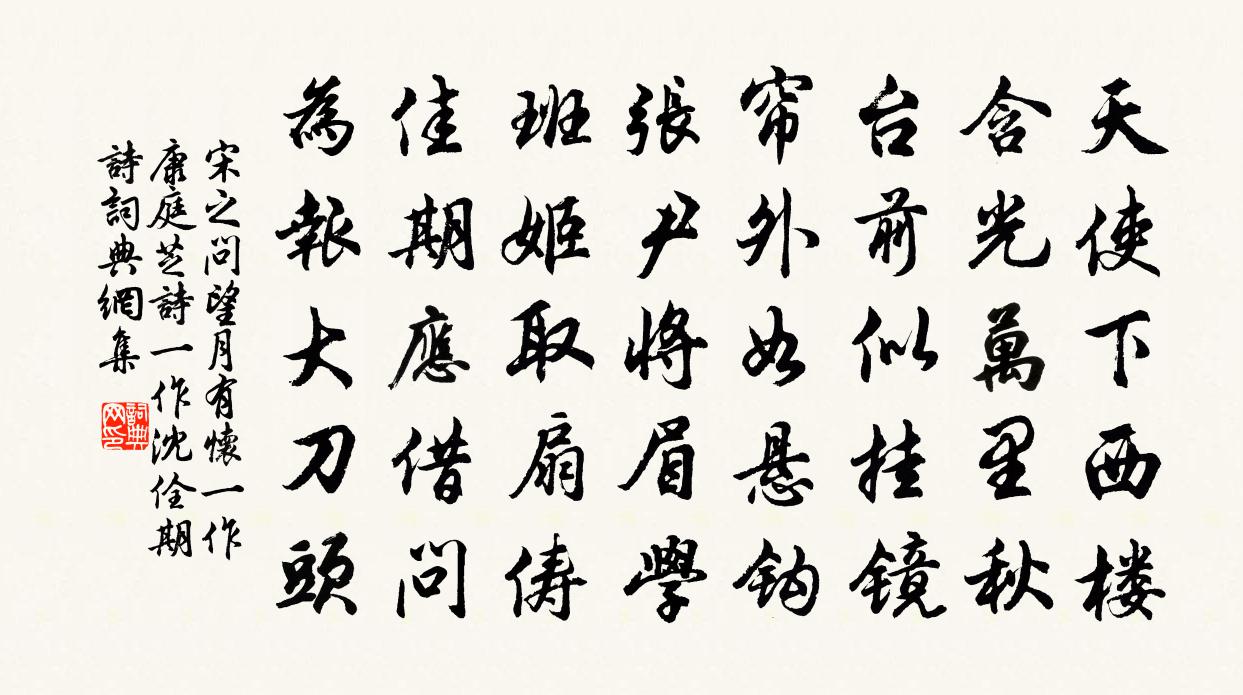 天使下西楼
含光萬里秋
台前似挂镜
帘外如悬钩
張尹将眉學
班姬取扇俦
佳期應借问
為報大刀頭
宋之问望月有懷一作
康庭芝詩一作沈佺期
詩詞典網集
詞典网印